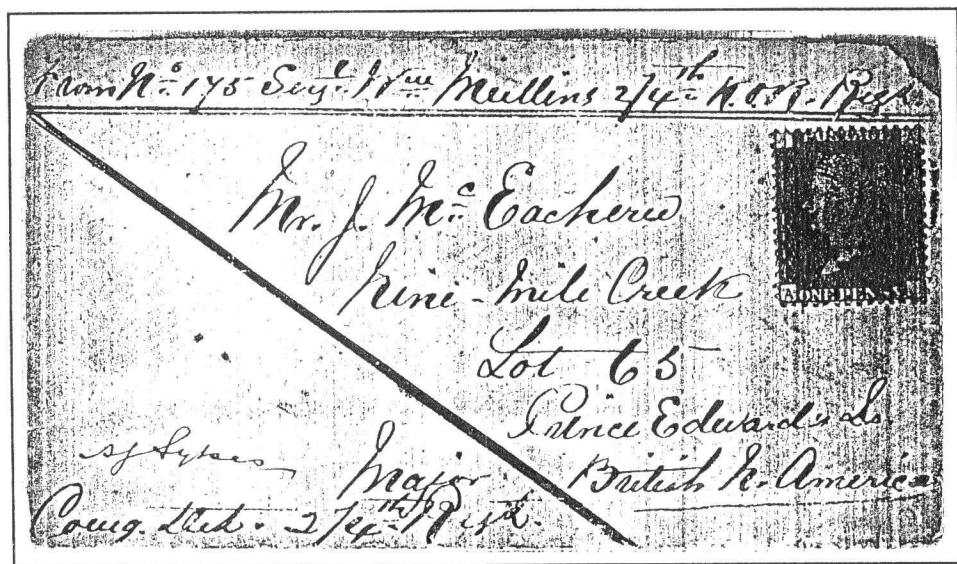 From No. 175 Sergt. Wm. Mullins 2/4th K.O.R. Regt.
Mr. J. Mc Eachern
Nine-Mile Creek
Lot 65
Prince Edward's Is.
British N. America
Sykes
Major
Comg. Det. 2/4th Regt.
ONE PENNY